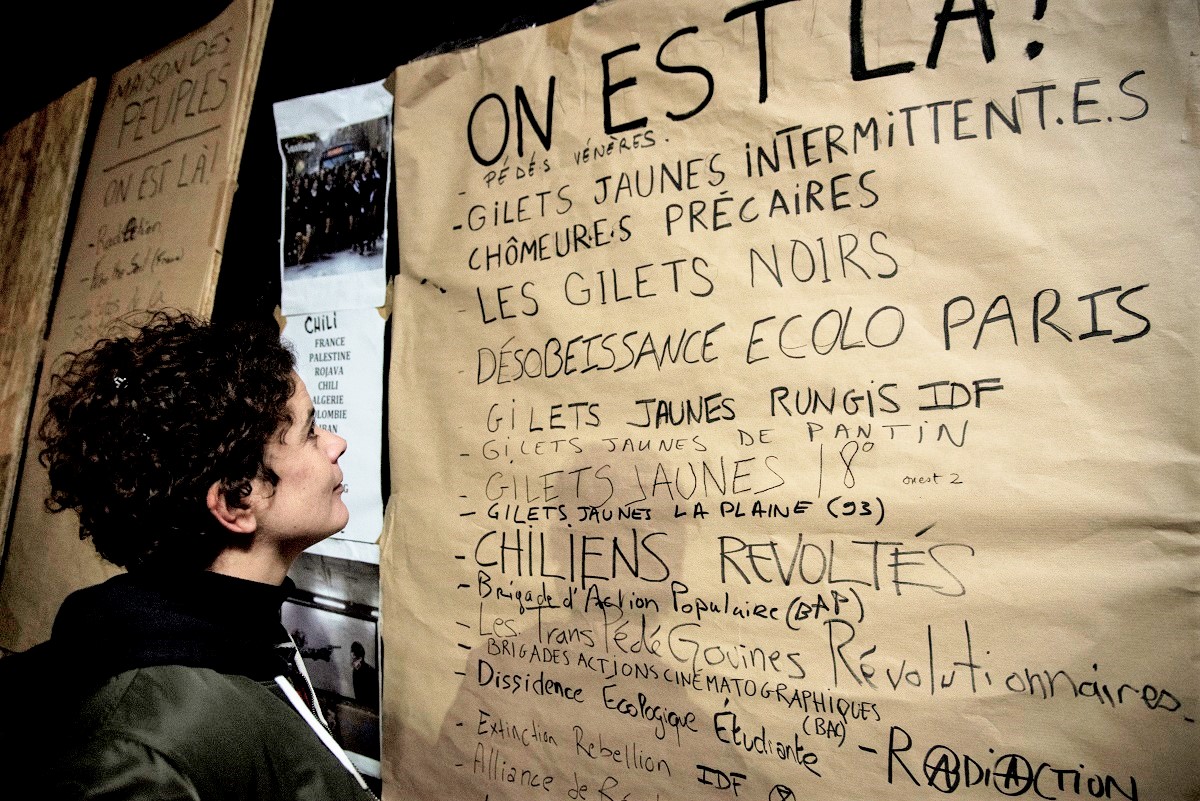 MAISON DES
PEUPLES
ON EST LÀ!
- RadiAction
CHiLi
FRANCE
PALESTINE
ROJAVA
CHILI
ALGERIE
OLOMBIE
ON EST LÀ!
- PÉDÉS VÉNÈRES.
- GiLETS JAUNES iNTERMiTTENT.E.S
CHÔMEUR.E.S PRÉCAiRES
- LES GILETS NOIRS
- DÉSOBEISSANCE ECOLO PARIS
GiLETS JAUNES RUNGiS IDF
- GiLETS JAUNES DE PANTiN
- GILETS JAUNES 18° ouest 2
- GILETS JAUNES LA PLAINE (93)
- CHiLIENS REVOLTÉS
- Brigade d'Action Populaire (BAP)
- Les Trans Pédé Gouines Révolutionnaires.
- BRIGADES ACTIONS CINÉMATOGRAPHIQUES
(BAC)
- Dissidence Ecologique Étudiante
- RADiACTiON
- Extinction Rebellion IDF
- Alliance de